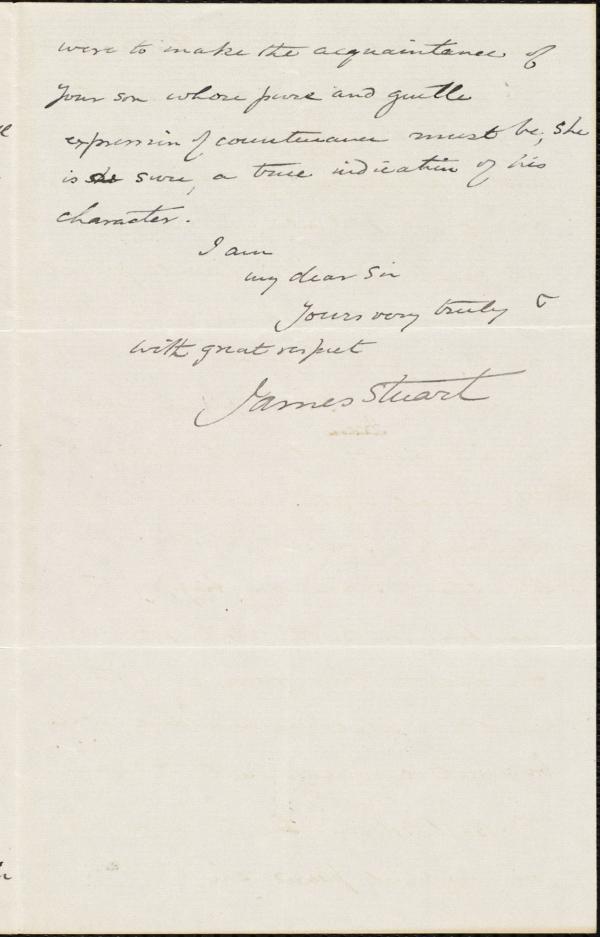 were to make the acquaintance of
your son whose pure and gentle
expression of countenance must be, she
is sure, a true indication of his
character.
I am
my dear Sir
Yours very truly &
with great respect
James Stuart